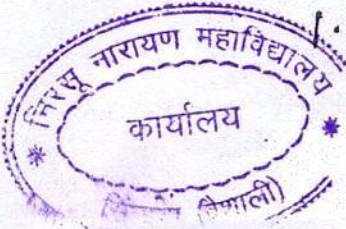 निरसू नारायण महाविद्यालय
कार्यालय
(वैशाली)